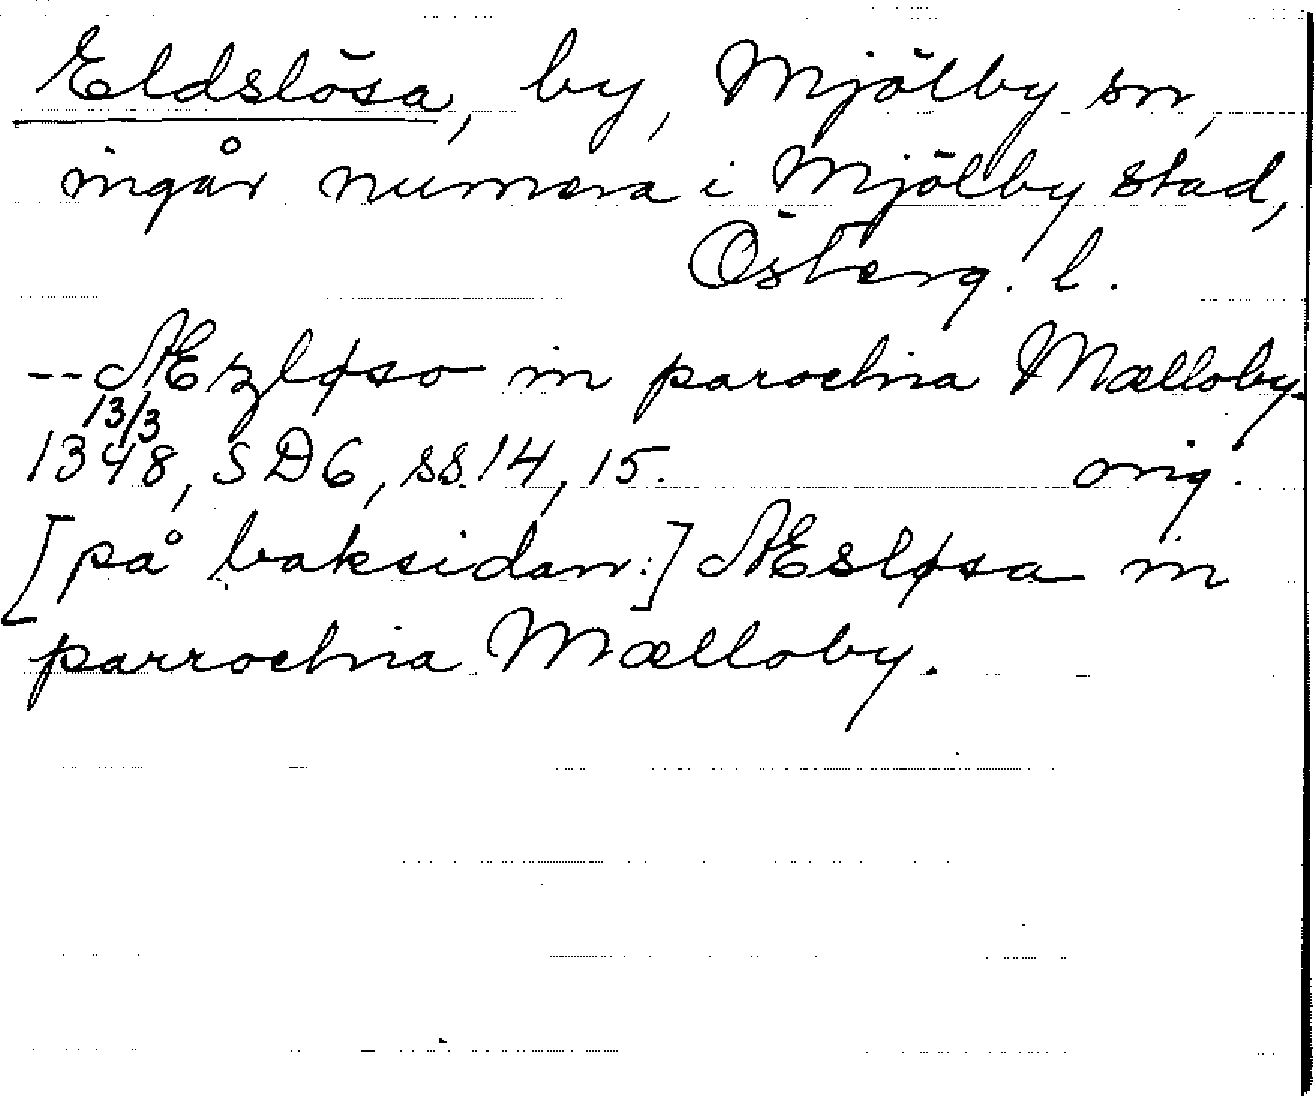 Eldslösa, by, Mjölby sn,
ingår numera i Mjölby stad,
Österg. l.
-- Æzløso in parochia Mælloby
13/3
1348, SD6, ss. 14, 15. orig.
[på baksidan:] Æsløsa in
parrochia Mælloby.